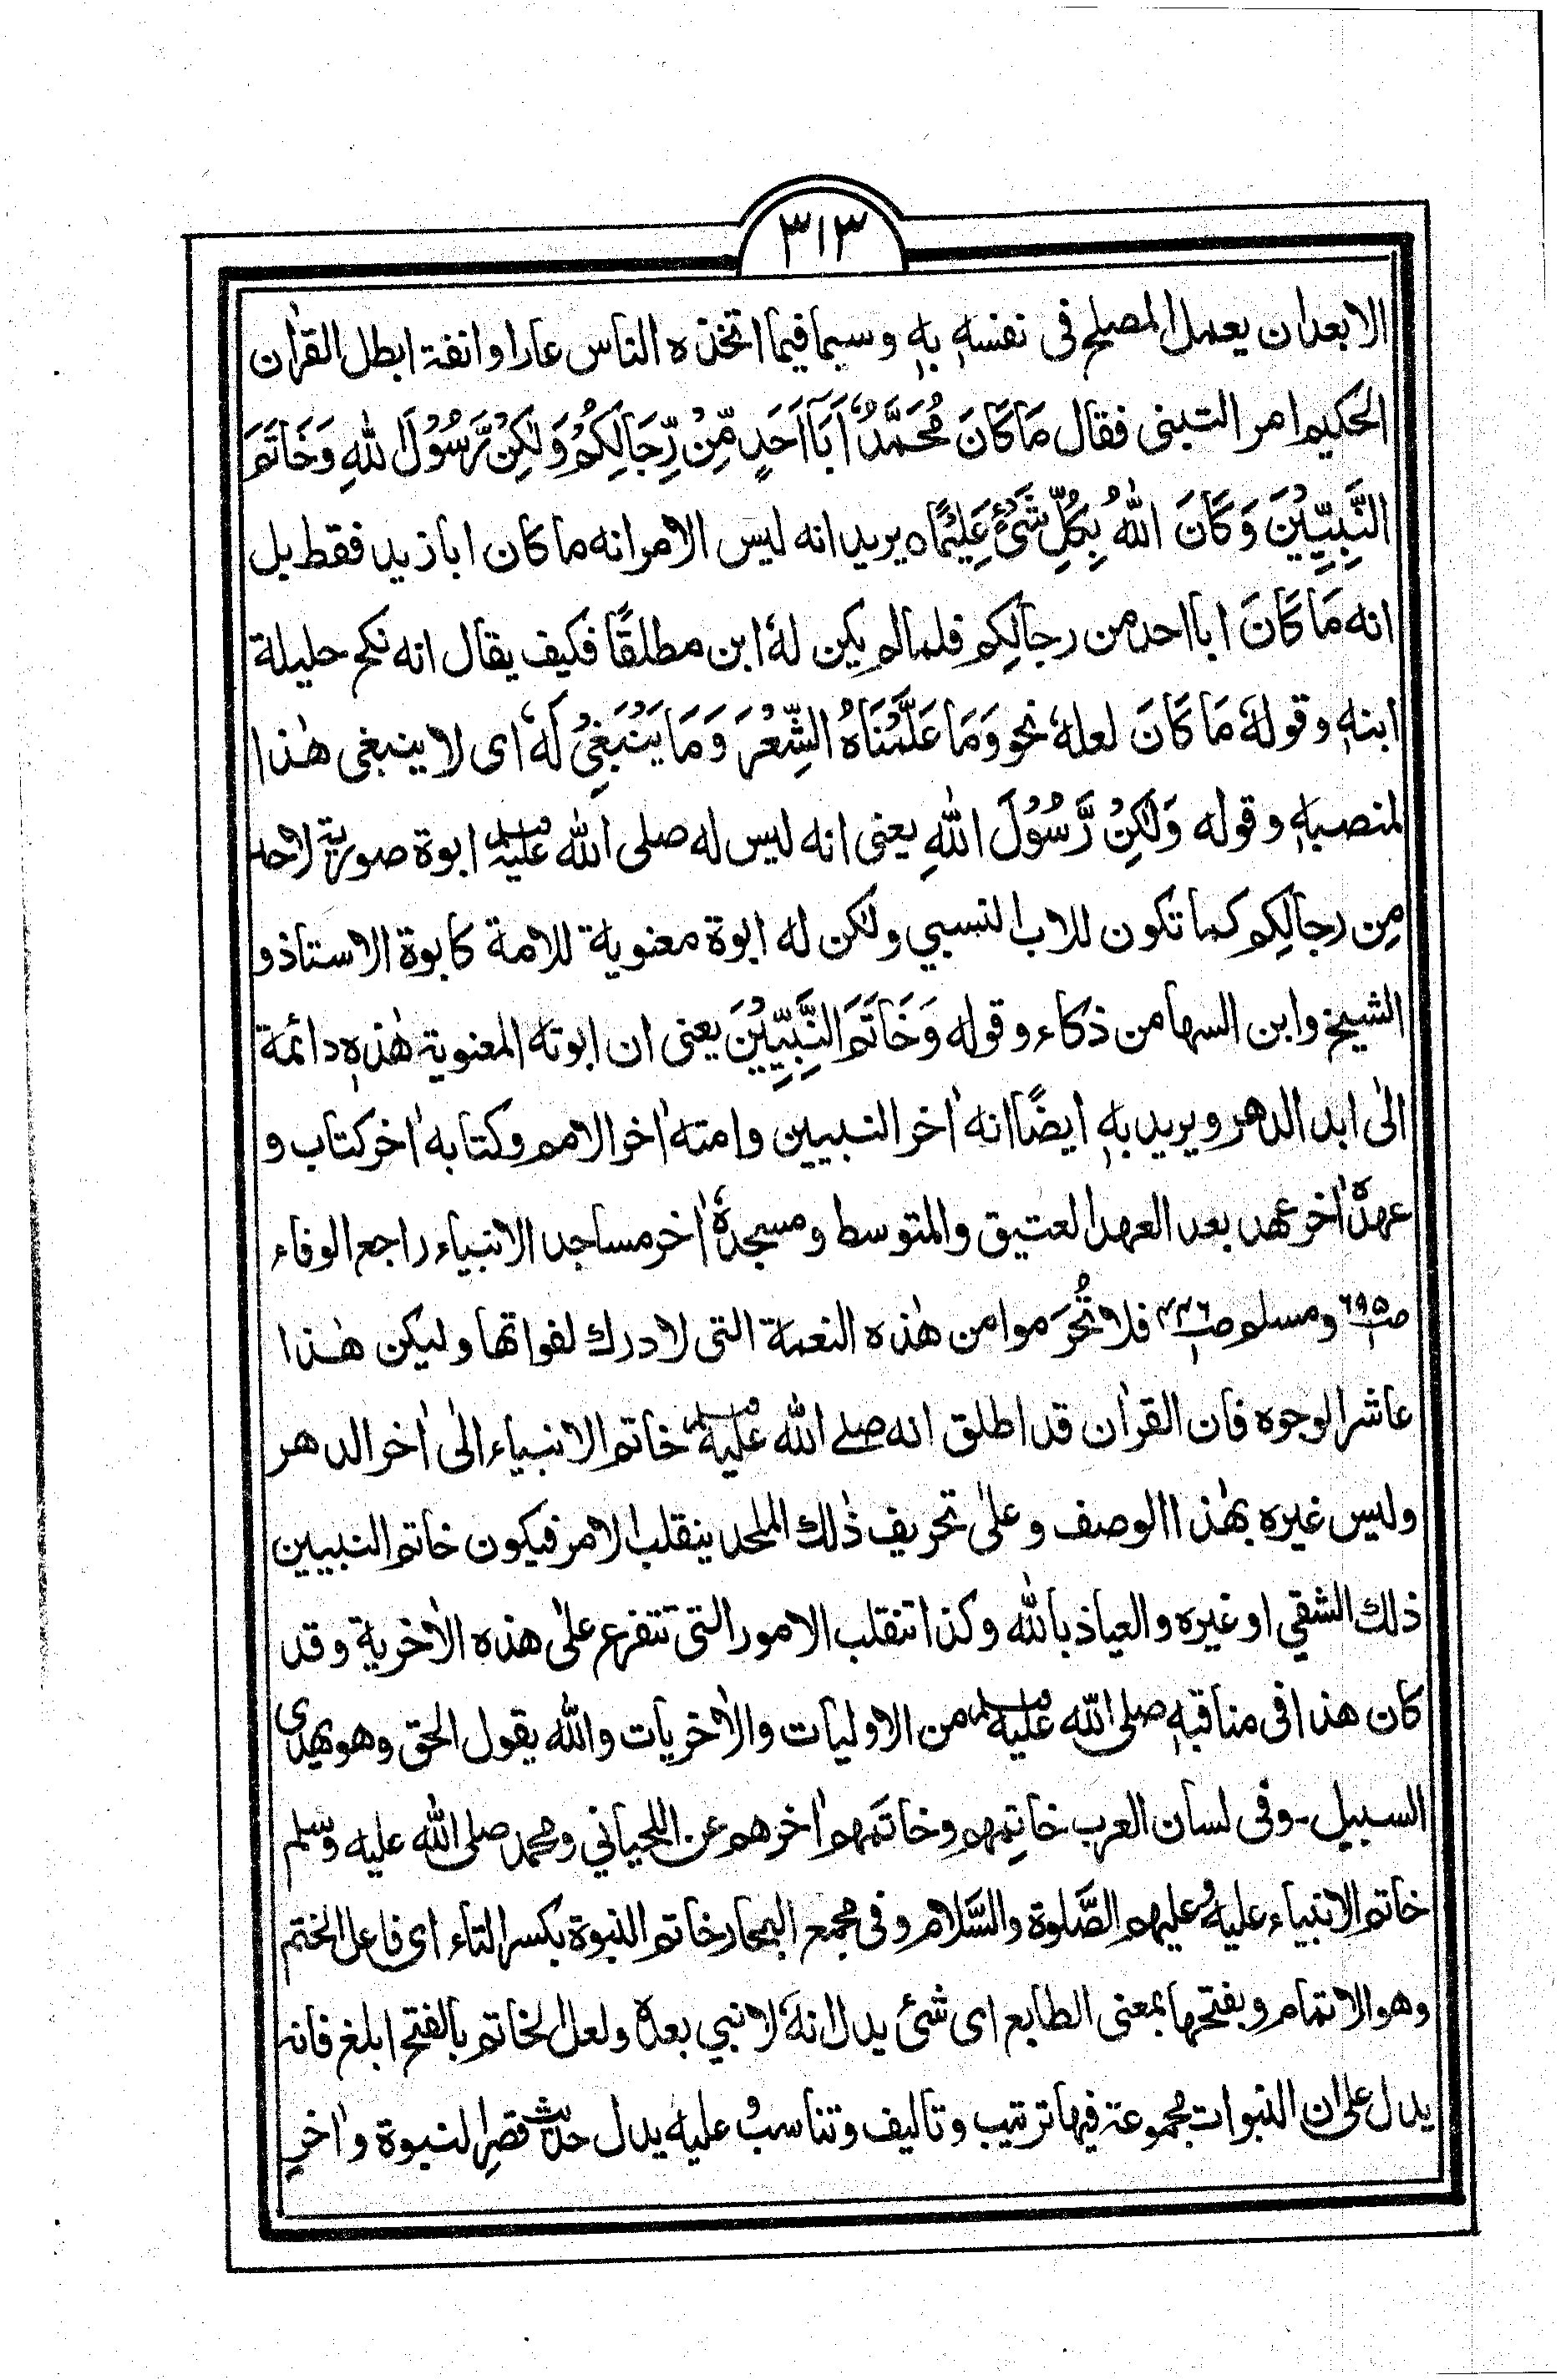 ٣١٣
الا بعد ان يعمل المصلح فى نفسهٖ بهٖ وسيما فيما اتخذه الناس عارا وانفة ابطل القرٰان
الحكيم امر التبنى فقال مَا كَانَ مُحَمَّدٌ اَبَا اَحَدٍ مِّنْ رِّجَالِكُمْ وَلٰكِنْ رَّسُوْلَ اللّٰهِ وَخَاتَمَ
النَّبِيِّيْنَ وَكَانَ اللّٰهُ بِكُلِّ شَىْءٍ عَلِيْمًا ٥ يريد انه ليس الامر انه ما كان ابا زيد فقط بل
انه مَا كَانَ ابا احد من رجالِكم فلما لم يكن لهٗ ابن مطلقًا فكيف يقال انه نكح حليلة
ابنهٖ وقولهٗ مَا كَانَ لعلهٗ نحو وَمَا عَلَّمْنَاهُ الشِّعْرَ وَمَا يَنْبَغِىْ لَهٗ اى لا ينبغى هٰذا
لمنصبهٖ وقوله وَلٰكِنْ رَّسُوْلَ اللّٰهِ يعنى انه ليس له صلى اللّٰه عليه وسلم ابوة صورية لاحد
مِن رجالِكم كما تكون للاب النسبي ولٰكن له ابوة معنوية للامة كابوة الاستاذ و
الشيخ وابن السها من ذكاء وقوله وَخَاتَمَ النَّبِيِّيْنَ يعنى ان ابوته المعنوية هٰذهٖ دائمة
الىٰ ابد الدهر ويريد بهٖ ايضًا انه اٰخر النبيين وامته اٰخر الامم وكتابه اٰخر كتاب و
عهدهٗ اٰخر عهد بعد العهد العتيق والمتوسط ومسجدهٗ اٰخر مساجد الانبياء راجع الوفاء
ص ٦٩٥ ومسلم ص ٤٤٦ فلا تُحْرَموا من هٰذه النعمة التى لا درك لفواتها وليكن هٰذا
عاشر الوجوه فان القرٰان قد اطلق انه صلے اللّٰه عليه وسلم خاتم الانبياء الىٰ اٰخر الدهر
وليس غيره بهٰذا الوصف وعلىٰ تحريف ذٰلك الملحد ينقلب الامر فيكون خاتم النبيين
ذلك الشقي او غيره والعياذ باللّٰه وكذا تنقلب الامور التى تتفرع علىٰ هذه الاٰخرية وقد
كان هذا فى مناقبهٖ صلى اللّٰه عليه وسلم من الاوليات والاٰخريات واللّٰه يقول الحق وهو يهدى
السبيل - وفى لسان العرب خاتِمهم وخاتَمهم اٰخرهم عن اللحياني ومحمد صلى اللّٰه عليه وسلم
خاتم الانبياء عليه وعليهم الصَّلوة والسَّلام وفى مجمع البحار خاتم النبوة بكسر التاء اى فاعل الختم
وهو الاتمام وبفتحها بمعنى الطابع اى شئ يدل انهٗ لا نبي بعدهٗ ولعل الخاتم بالفتح ابلغ فانه
يدل على ان النبوات مجموعة فيها ترتيب وتاليف وتناسب و عليه يدل حديث قصرِ النبوة واٰخرِ